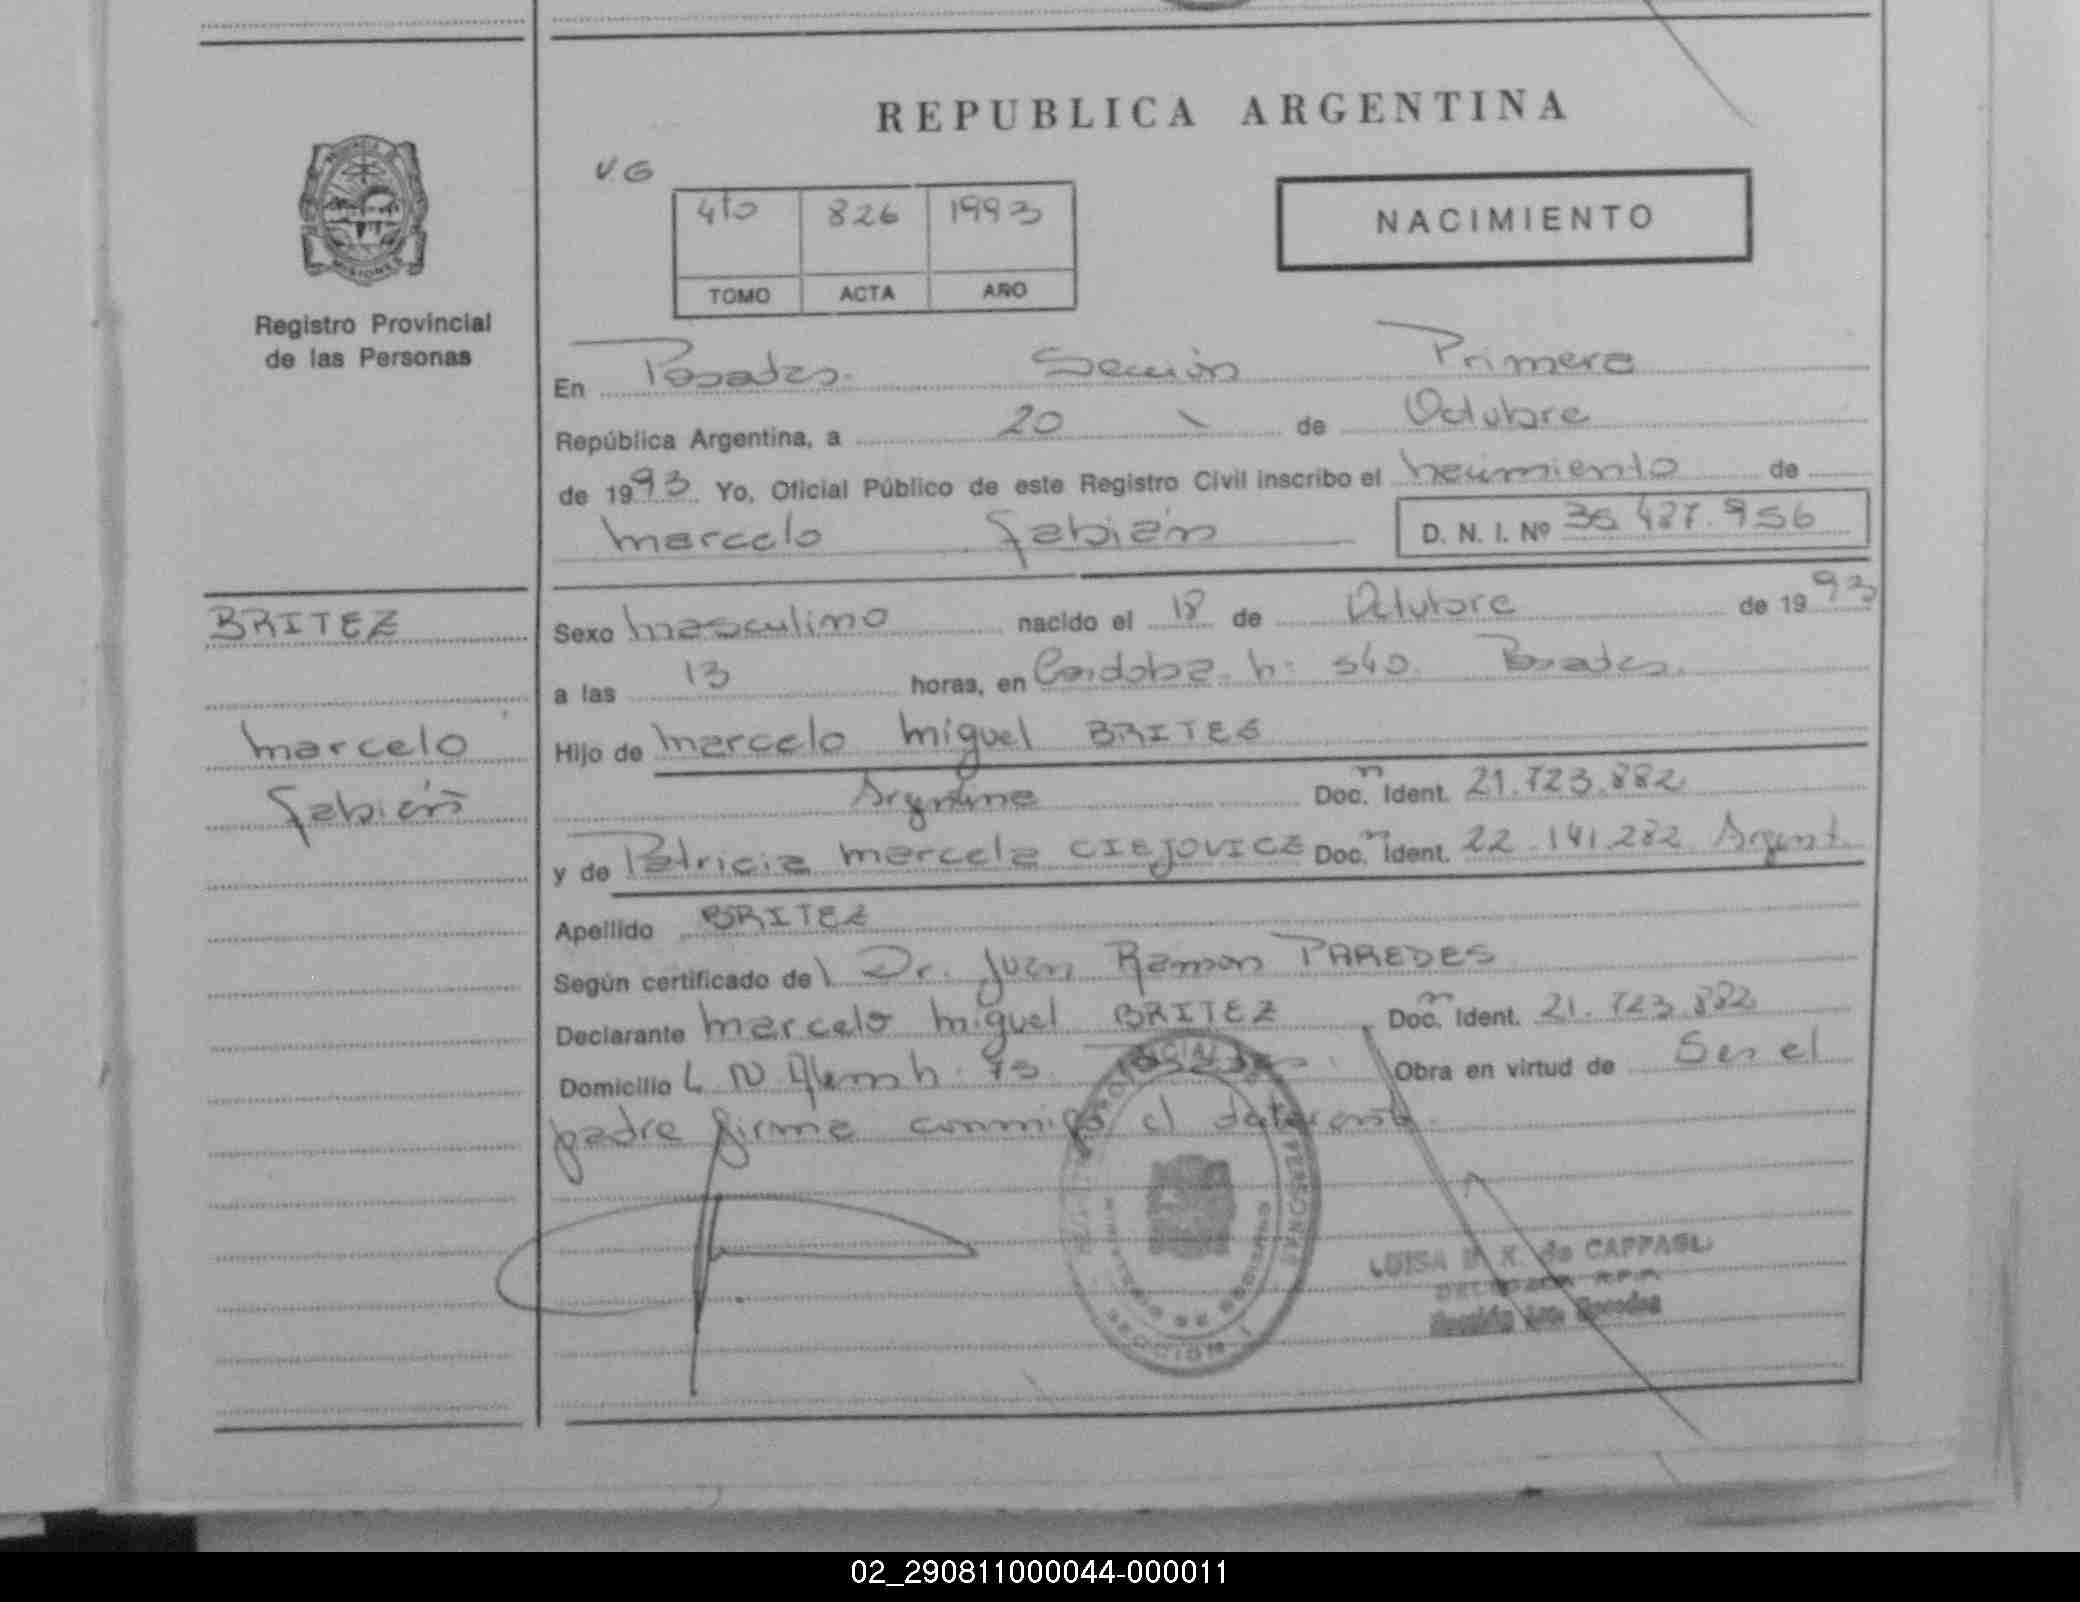 REPUBLICA ARGENTINA
V.G
4to 826 1993
TOMO ACTA AÑO
NACIMIENTO
MISIONES
Registro Provincial
de las Personas
En Posadas. Sección Primera
República Argentina, a 20 de Octubre
de 1993 Yo, Oficial Público de este Registro Civil inscribo el nacimiento de
Marcelo Fabián D. N. I. Nº 36.427.956
BRITEZ
Marcelo
Fabián
Sexo masculino nacido el 18 de Octubre de 1993
a las 13 horas, en Cordoba n: 540. Posadas.
Hijo de Marcelo Miguel BRITES
Argentino Doc. Ident. 21.723.882
y de Patricia Marcela CIEJOVICZ Doc. Ident. 22.141.282 Argent.
Apellido BRITEZ
Según certificado del Dr. Juan Ramon PAREDES
Declarante Marcelo Miguel BRITEZ Doc. Ident. 21.723.882
Domicilio L N Alem n. 75 Obra en virtud de Ser el
padre firma conmigo el
PERSONAS
MISIONES
SECCION 1
LUISA de CAPPAGLI
02_290811000044-000011